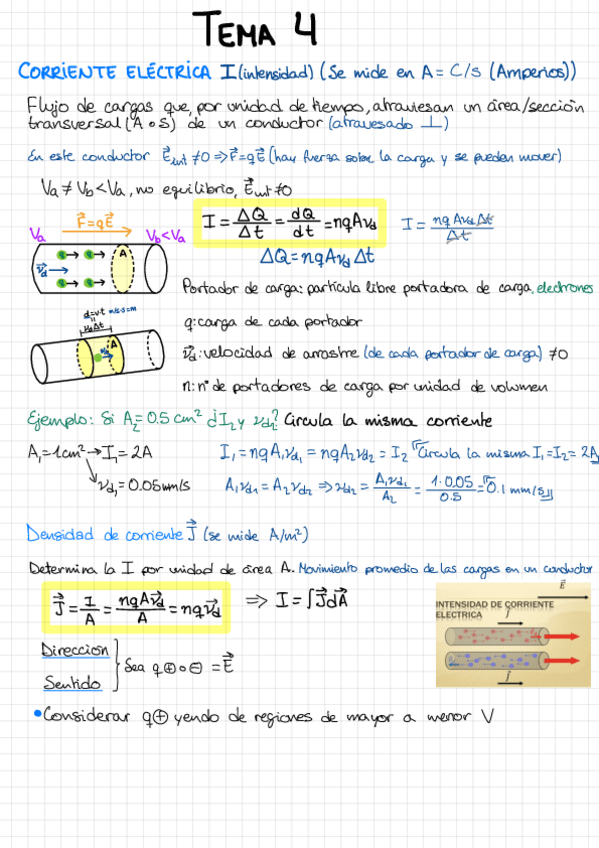 TEMA 4
CORRIENTE ELÉCTRICA I (intensidad) (Se mide en A = C/s (Amperios))
Flujo de cargas que, por unidad de tiempo, atraviesan un área/sección
transversal (A o S) de un conductor (atravesado ⊥)
En este conductor E⃗int ≠0 ⇒ F⃗=qE⃗ (hay fuerza sobre la carga y se pueden mover)
Va ≠ Vb < Va, no equilibrio, E⃗int ≠0
F⃗=qE⃗
Va
Vb<Va
A
v⃗d
I = ΔQ/Δt = dQ/dt = nqAvd
I = nqAvdΔt/Δt
ΔQ = nqAvdΔt
Portador de carga: partícula libre portadora de carga, electrones
d=v·t m/s·s=m
vdΔt
A
vd
q: carga de cada portador
v⃗d: velocidad de arrastre (de cada portador de carga) ≠0
n: nº de portadores de carga por unidad de volumen
Ejemplo: Si A2=0.5cm² ¿I2 y vd2? Circula la misma corriente
A1=1cm² → I1=2A
vd1=0.05mm/s
I1 = nqA1vd1 = nqA2vd2 = I2 Circula la misma I1=I2=2A
A1vd1 = A2vd2 ⇒ vd2 = A1vd1/A2 = 1·0.05/0.5 = 0.1 mm/s
Densidad de corriente J⃗ (se mide A/m²)
Determina la I por unidad de área A. Movimiento promedio de las cargas en un conductor
J⃗ = I/A = nqAv⃗d/A = nqv⃗d
⇒ I = ∫J⃗dA⃗
E⃗
INTENSIDAD DE CORRIENTE
ELECTRICA
J⃗
J⃗
Dirección
Sentido
Sea q⊕ o ⊖ = E⃗
•Considerar q⊕ yendo de regiones de mayor a menor V